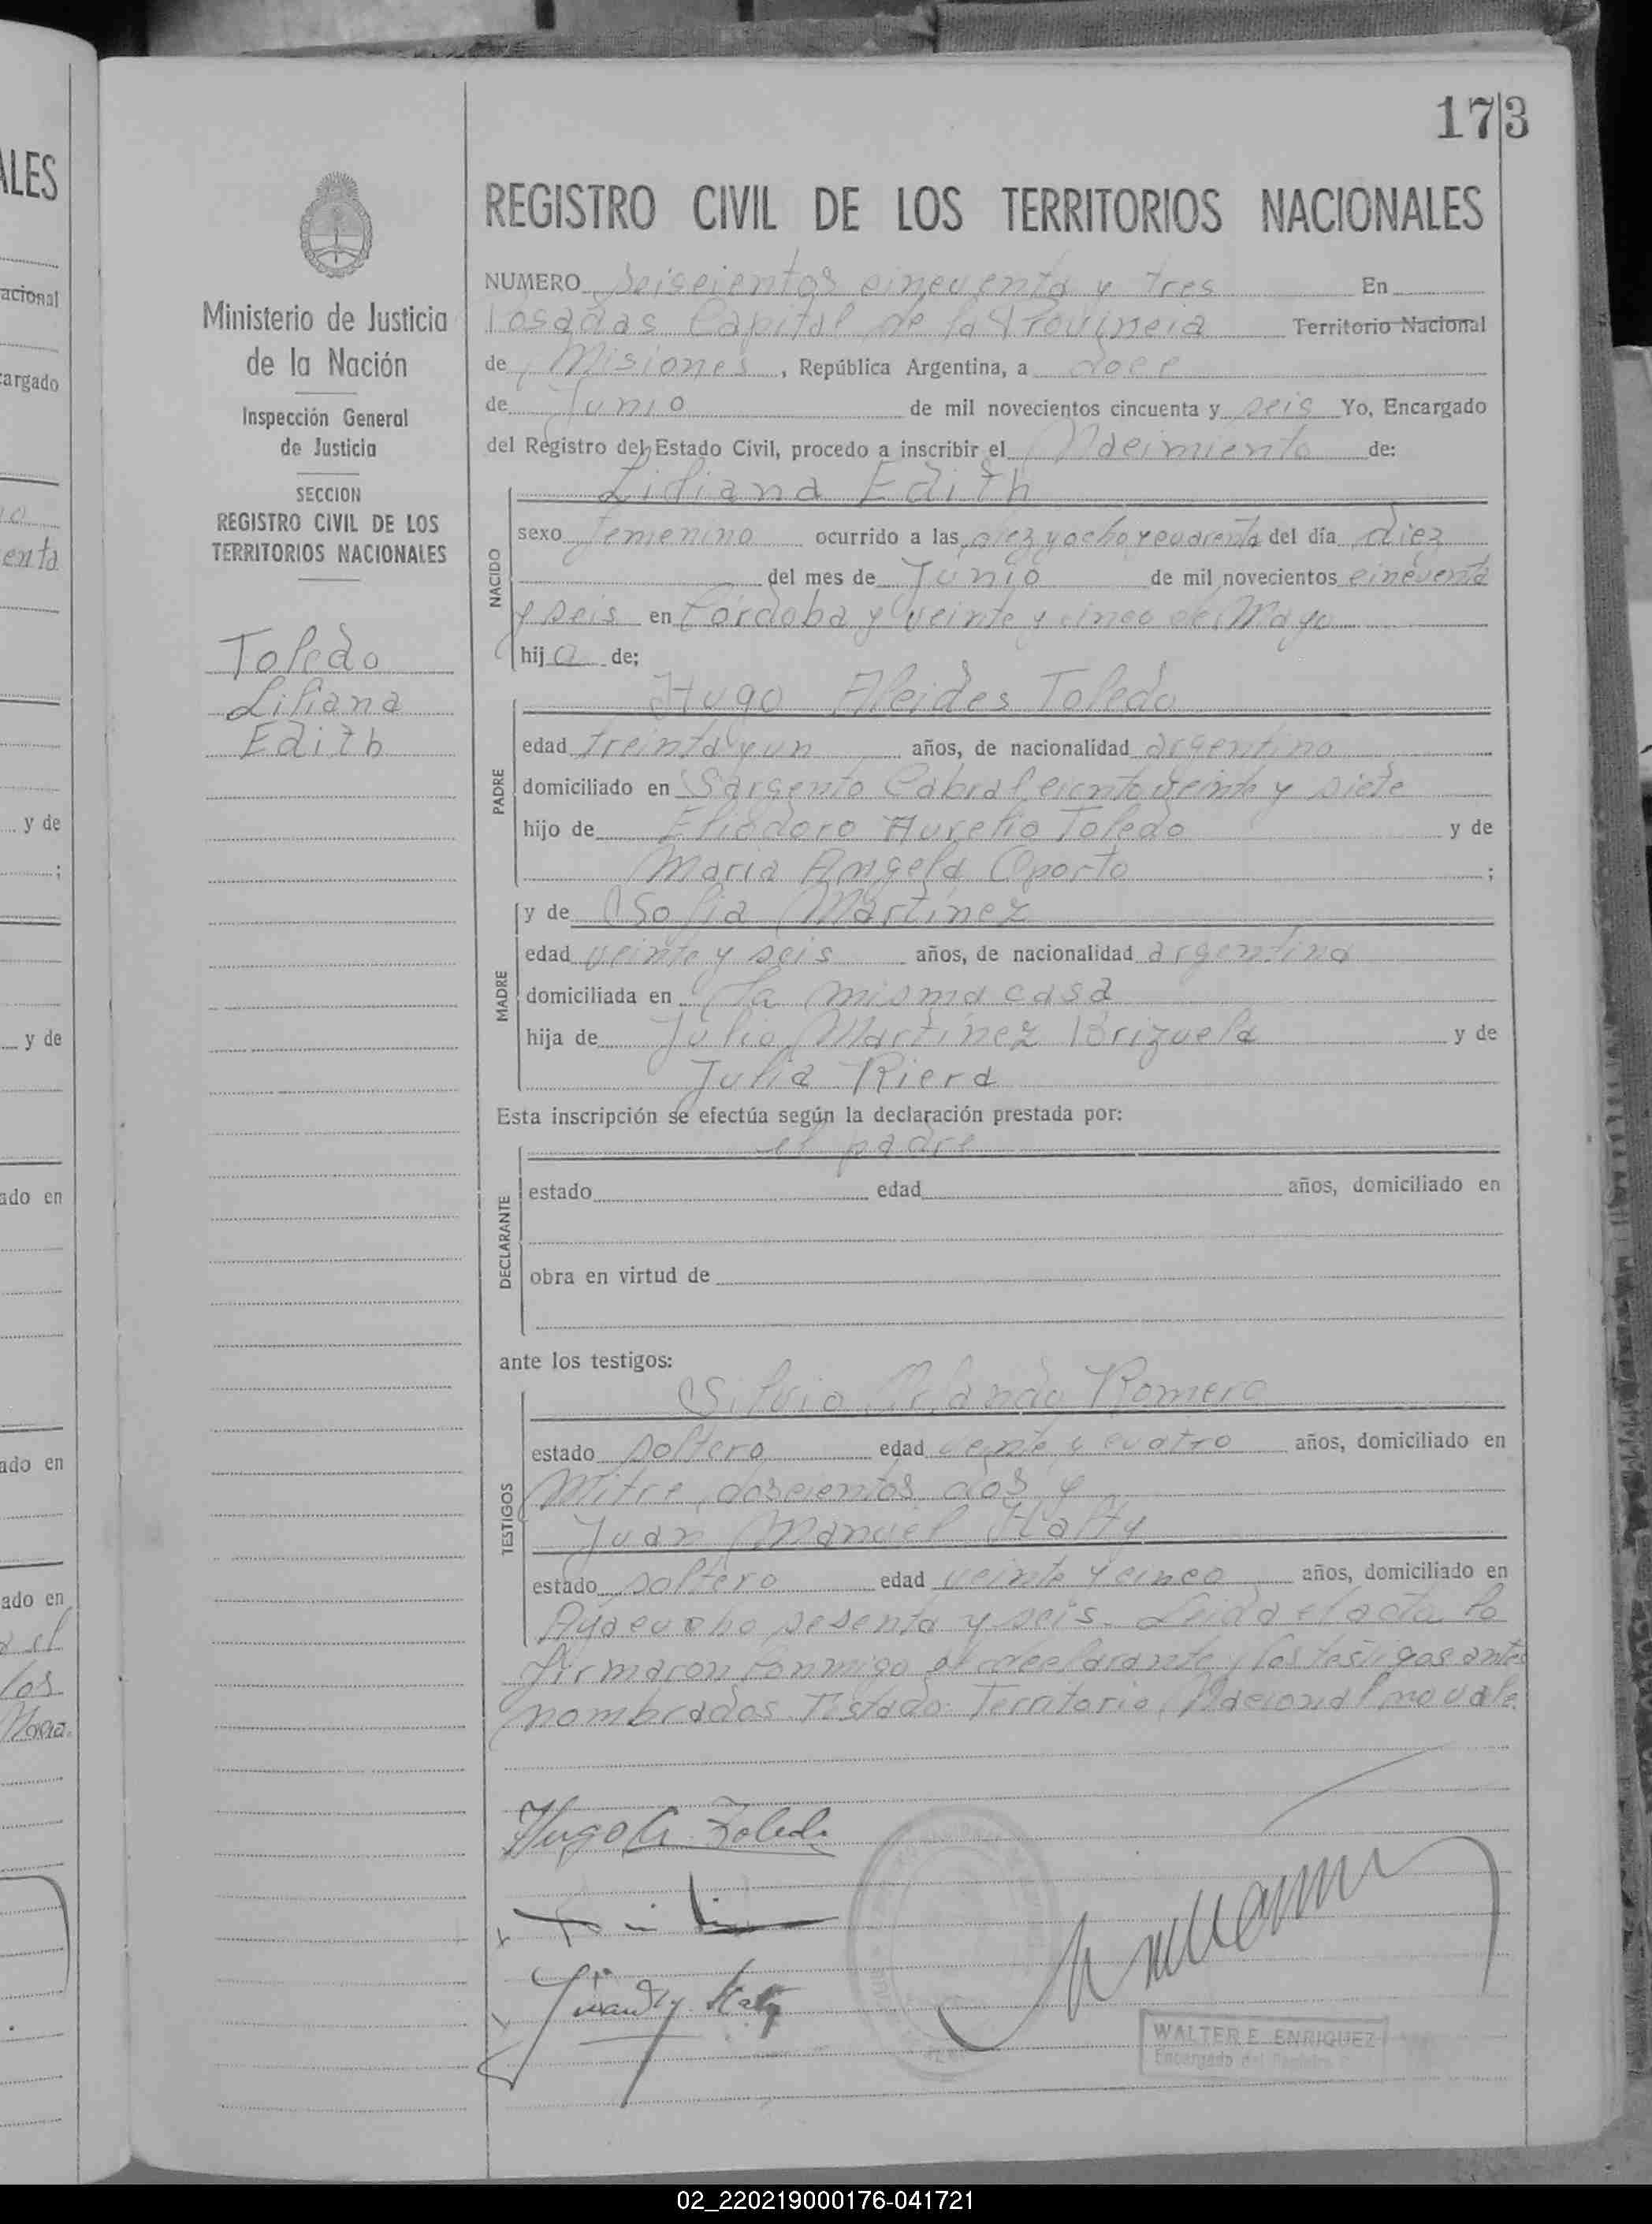 173
ALES
REGISTRO CIVIL DE LOS TERRITORIOS NACIONALES
Ministerio de Justicia
de la Nación
Inspección General
de Justicia
SECCION
REGISTRO CIVIL DE LOS
TERRITORIOS NACIONALES
Toledo
Liliana
Edith
NUMERO Seiscientos cincuenta y tres En
Posadas Capital de la Provincia Territorio Nacional
de Misiones, República Argentina, a doce
de Junio de mil novecientos cincuenta y seis Yo, Encargado
del Registro del Estado Civil, procedo a inscribir el Nacimiento de:
Liliana Edith
NACIDO
sexo femenino ocurrido a las diez y ocho y cuarenta del día diez
del mes de Junio de mil novecientos cincuenta
y seis en Córdoba y veinte y cinco de Mayo
hija de;
Hugo Alcides Toledo
PADRE
edad treinta y un años, de nacionalidad argentino
domiciliado en Sargento Cabral ciento veinte y siete
hijo de Eliodoro Aurelio Toledo y de
Maria Angela Oporto ;
y de Sofia Martinez
MADRE
edad veinte y seis años, de nacionalidad argentina
domiciliada en la misma casa
hija de Julio Martinez Brizuela y de
Julia Riera
Esta inscripción se efectúa según la declaración prestada por:
el padre
DECLARANTE
estado edad años, domiciliado en
obra en virtud de
ante los testigos:
Silvio Orlando Romero
TESTIGOS
estado soltero edad veinte y cuatro años, domiciliado en
Mitre doscientos dos y
Juan Manuel Halty
estado soltero edad veinte y cinco años, domiciliado en
Ayacucho sesenta y seis. Leida el acta la
firmaron conmigo el declarante y los testigos antes
nombrados. Testado: Territorio Nacional no vale.
Hugo A. Toledo
WALTER E. ENRIQUEZ
Encargado del Registro
acional
cargado
enta
y de
;
y de
ado en
ado en
ado en
el
los
02_220219000176-041721